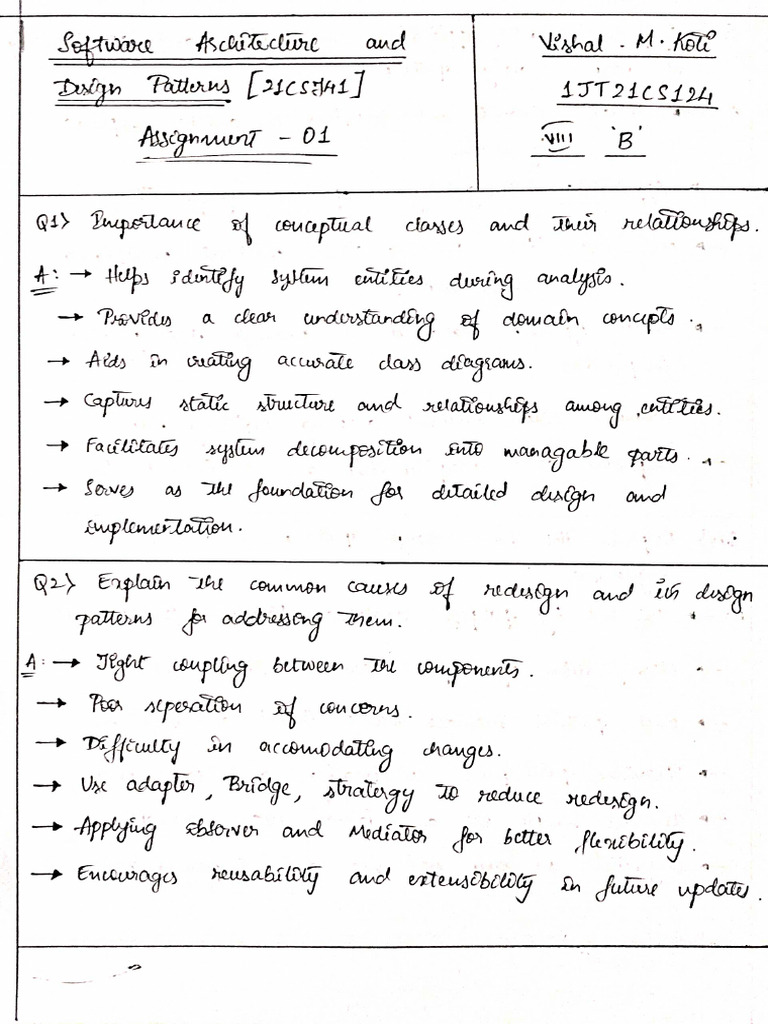 Software Architecture and
Design Patterns [21CS741]
Assignment - 01
Vishal . M . Koti
1JT21CS124
VIII 'B'
Q1> Importance of conceptual classes and their relationships.
A: → Helps identify system entities during analysis.
→ Provides a clear understanding of domain concepts.
→ Aids in creating accurate class diagrams.
→ Captures static structure and relationships among entities.
→ Facilitates system decomposition into managable parts.
→ Serves as the foundation for detailed design and
implementation.
Q2> Explain the common causes of redesign and its design
patterns for addressing them.
A: → Tight coupling between the components.
→ Poor seperation of concerns.
→ Difficulty in accomodating changes.
→ Use adapter, Bridge, stratergy to reduce redesign.
→ Applying observer and Mediator for better flexibility.
→ Encourages reusability and extensibility in future updates.